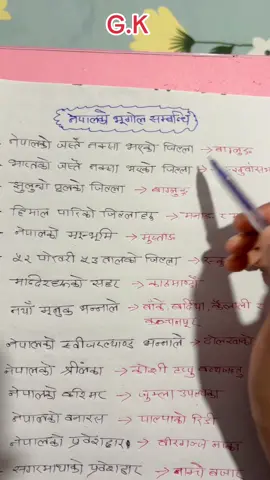 G.K
नेपालको भूगोल सम्बन्धि
नेपालको जस्तै नक्सा भएको जिल्ला → बाग्लुङ
भारतको जस्तै नक्सा भएको जिल्ला →
झुलुङ्गे पूलको जिल्ला → बाग्लुङ
हिमाल पारिको जिल्लाहरु → मनाङ र
नेपालको मरुभूमि → मुस्ताङ
५२ पोखरी ५३ तालको जिल्ला →
मन्दिरहरुको सहर → काठमाण्डौ
नयाँ मुलुक भन्नाले → बाँके, बर्दिया, कैलाली र
कञ्चनपुर
नेपालको स्वीजरल्याण्ड भन्नाले → दोलखाको
नेपालको श्रीलंका → कोशी टप्पु
नेपालको कश्मिर → जुम्ला उपत्यका
नेपालको बनारस → पाल्पाको रिडी
नेपालको प्रवेशद्वार → वीरगञ्ज नाका
सगरमाथाको प्रवेशद्वार → नाम्चे बजार